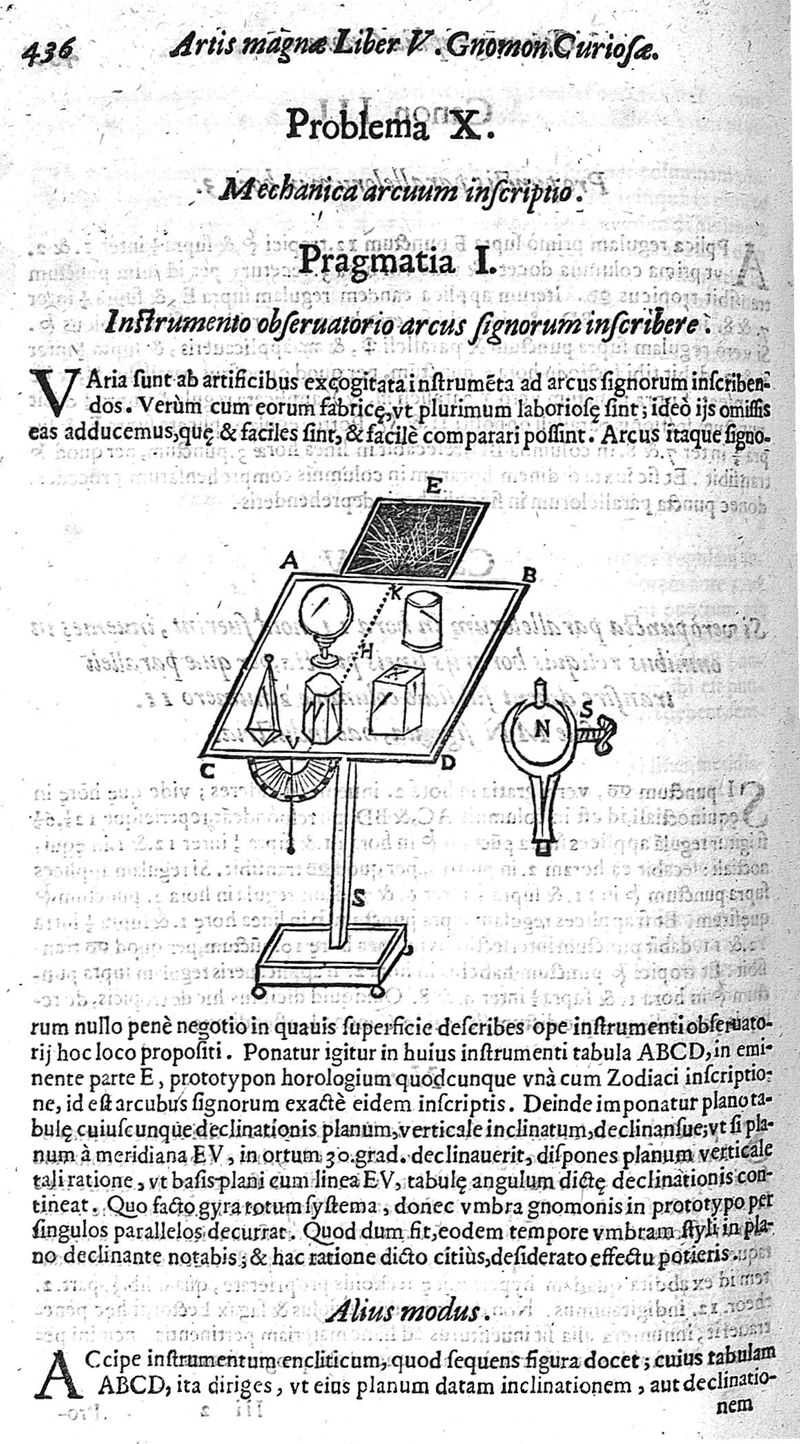 436 Artis magnæ Liber V. Gnomon. Curioſæ.
Problema X.
Mechanica arcuum inſcriptio.
Pragmatia I.
Inſtrumento obſeruatorio arcus ſignorum inſcribere.
VAria ſunt ab artificibus excogitata inſtrumēta ad arcus ſignorum inſcriben-
dos. Verùm cum eorum fabricę, vt plurimum laborioſę ſint; ideò ijs omiſſis
eas adducemus, quę & faciles ſint, & facilè comparari poſſint. Arcus itaque ſigno-
E
A
B
K
H
N
S
V
C
D
S
rum nullo penè negotio in quauis ſuperficie deſcribes ope inſtrumenti obſeruato-
rij hoc loco propoſiti. Ponatur igitur in huius inſtrumenti tabula ABCD, in emi-
nente parte E, prototypon horologium quodcunque vnà cum Zodiaci inſcriptio-
ne, id eſt arcubus ſignorum exactè eidem inſcriptis. Deinde imponatur plano ta-
bulę cuiuſcunque declinationis planum, verticale inclinatum, declinanſue; vt ſi pla-
num à meridiana EV, in ortum 30. grad. declinauerit, diſpones planum verticale
tali ratione, vt baſis plani cum linea EV, tabulę angulum dictę declinationis con-
tineat. Quo facto gyra totum ſyſtema, donec vmbra gnomonis in prototypo per
ſingulos parallelos decurrat. Quod dum fit, eodem tempore vmbram ſtyli in pla-
no declinante notabis; & hac ratione dicto citiùs, deſiderato effectu potieris.
Alius modus.
ACcipe inſtrumentum encliticum, quod ſequens figura docet; cuius tabulam
ABCD, ita diriges, vt eius planum datam inclinationem, aut declinatio-
nem